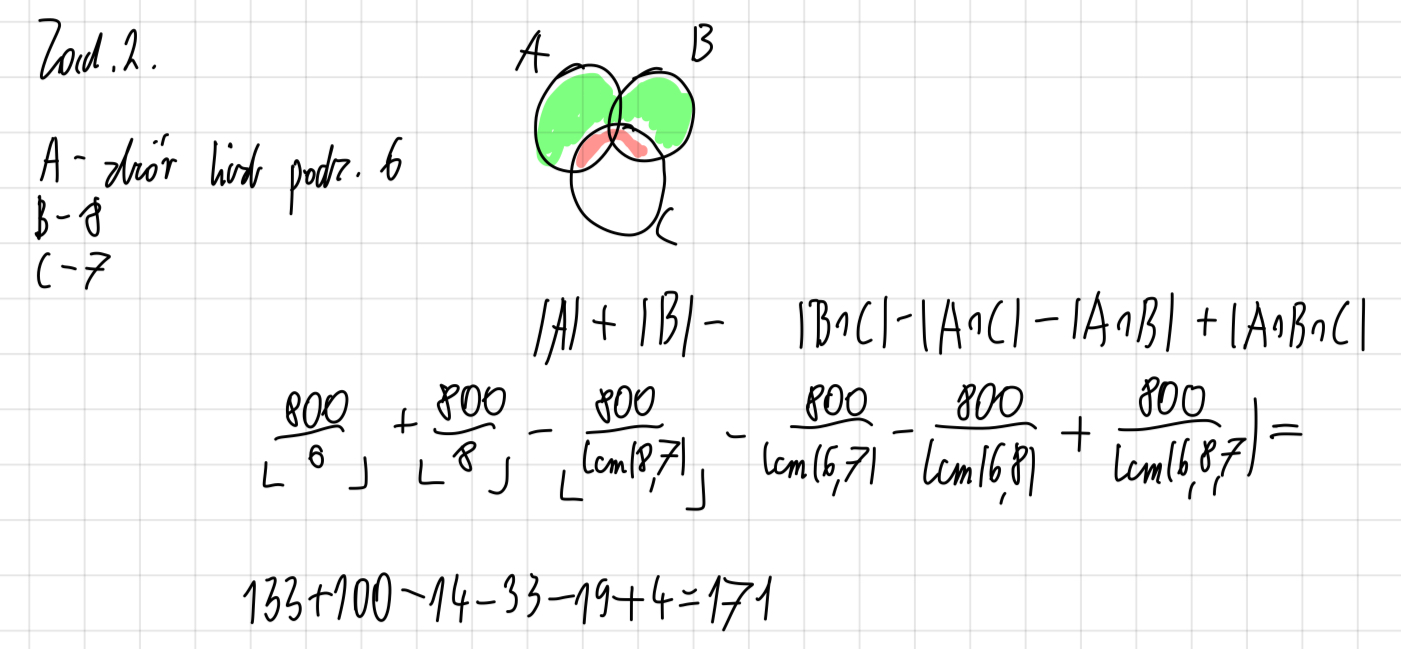 Zad.2.
A B
A - zbiór liczb podz. 6
B - 8
C - 7
C
|A| + |B| - |B∩C| - |A∩C| - |A∩B| + |A∩B∩C|
⌊800/6⌋ + ⌊800/8⌋ - ⌊800/lcm(8,7)⌋ - 800/lcm(6,7) - 800/lcm(6,8) + 800/lcm(6,8,7) =
133+100-14-33-19+4=171